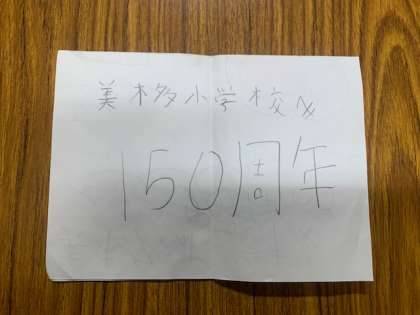 美木多小学校
150周年